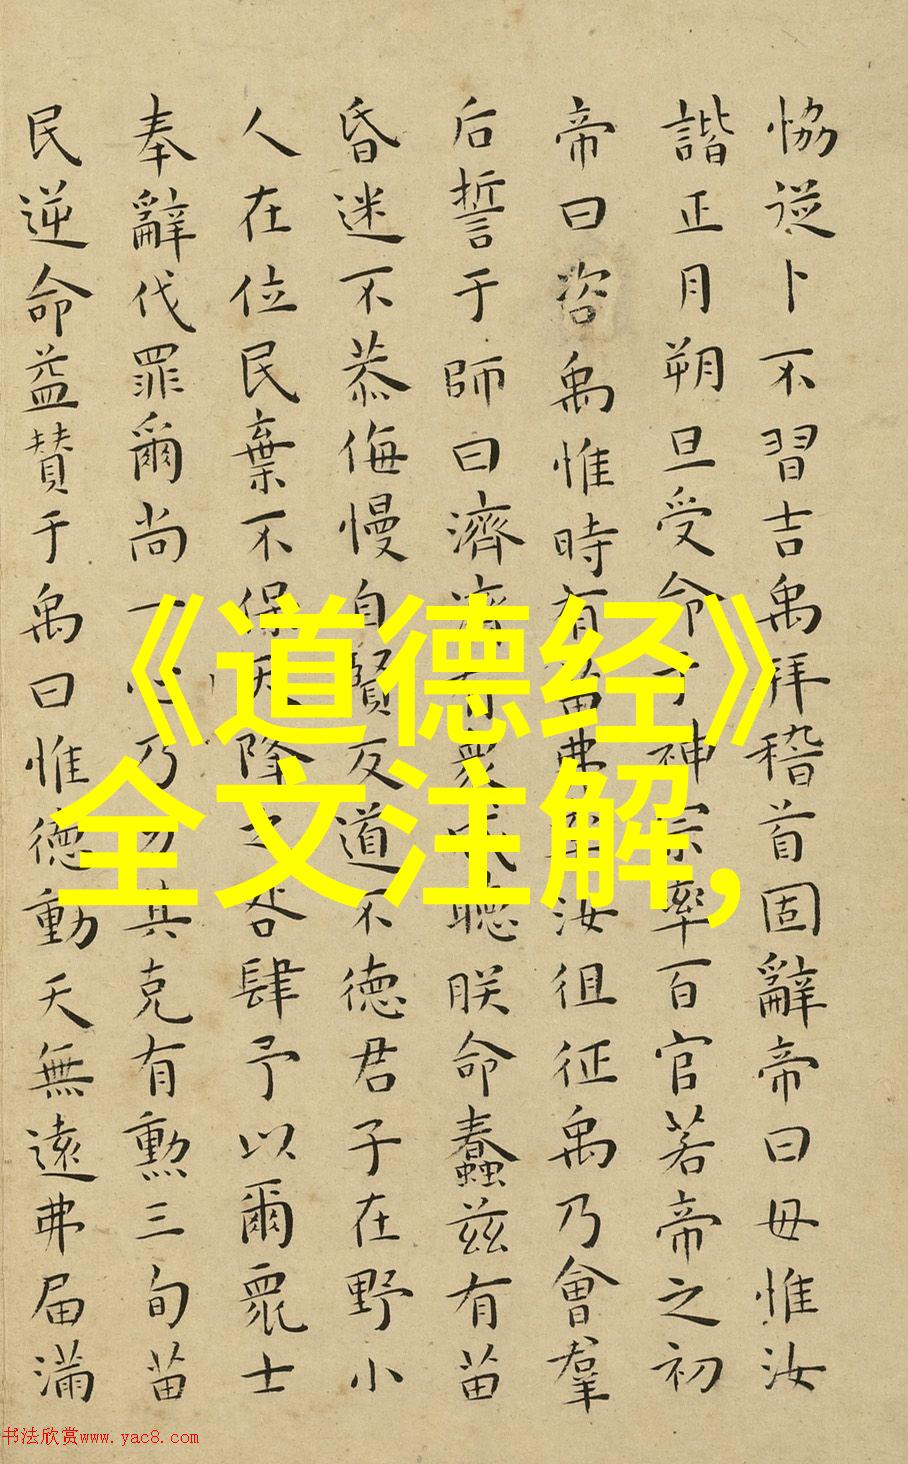 恊從卜不習吉禹拜稽首固辭帝曰毋惟汝
諧正月朔旦受命于神宗率百官若帝之初
帝曰咨禹惟時有苗弗率汝徂征禹乃會羣
后誓于師曰濟濟有衆咸聽朕命蠢兹有苗
昏迷不恭侮慢自賢反道不德君子在野小
人在位民棄不保天降之咎肆予以爾衆士
奉辭伐罪爾尚一心乃力其克有勳三旬苗
民逆命益贊于禹曰惟德動天無遠弗届滿
《道德经》
全文注解,
书法欣赏www.yac8.com